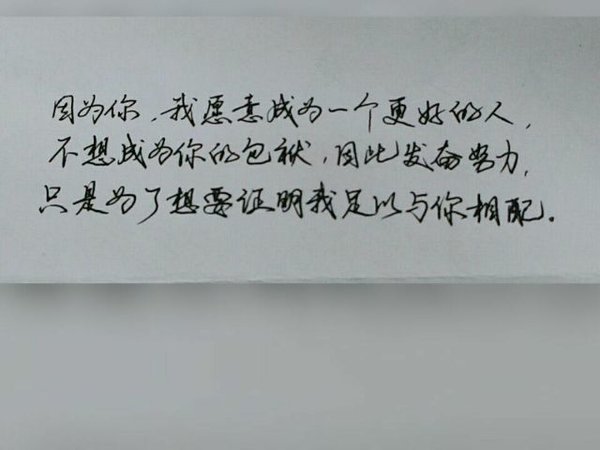 因为你，我愿意成为一个更好的人，
不想成为你的包袱，因此发奋努力，
只是为了想要证明我足以与你相配。